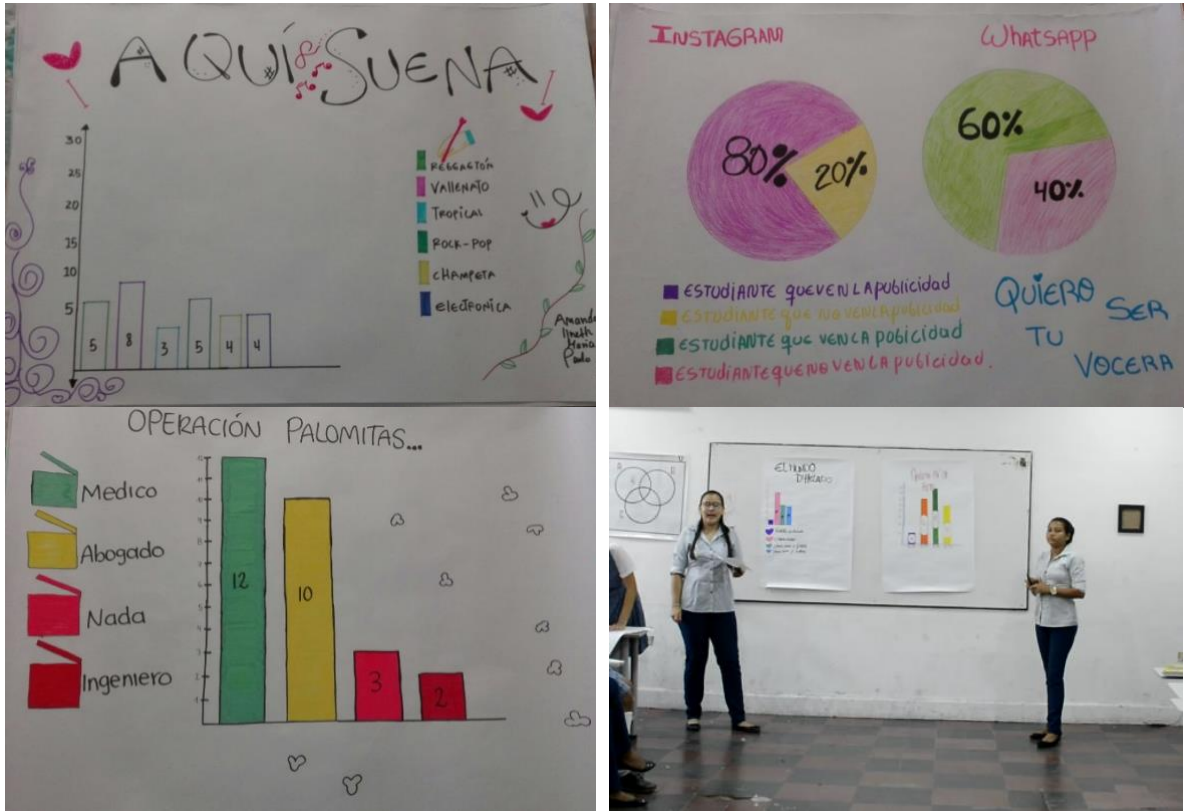 AQUÍ SUENA
30
25
20
15
10
5
5 8 3 5 4 4
REGGAETÓN
VALLENATO
TROPICAL
ROCK-POP
CHAMPETA
ELECTRONICA
Amanda
María
Paola
INSTAGRAM
WHATSAPP
80% 20%
60%
40%
ESTUDIANTE QUE VEN LA PUBLICIDAD
ESTUDIANTE QUE NO VEN LA PUBLICIDAD
ESTUDIANTE QUE VEN LA POBLICIDAD
ESTUDIANTE QUE NO VEN LA PUBLICIDAD.
QUIERO SER
TU
VOCERA
OPERACIÓN PALOMITAS...
Medico
Abogado
Nada
Ingeniero
12
10
3
2
EL MUNDO